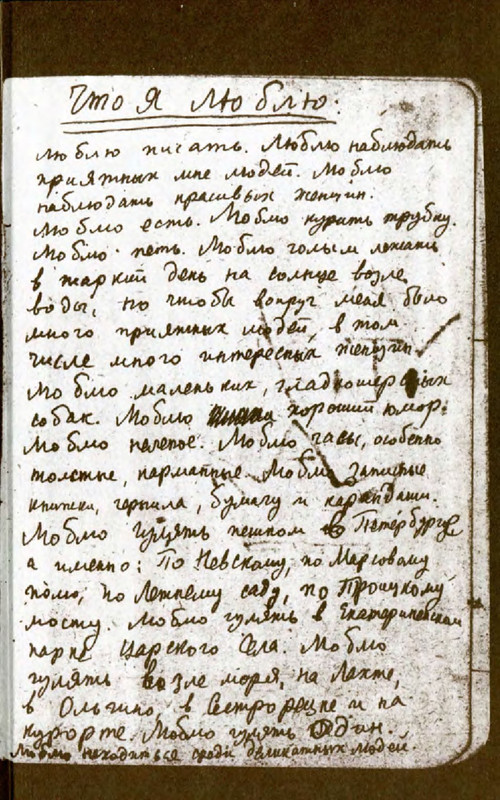 Что я люблю.
Люблю писать. Люблю наблюдать
приятных мне людей. Люблю
наблюдать красивых женщин.
Люблю есть. Люблю курить трубку.
Люблю петь. Люблю голым лежать
в жаркий день на солнце возле
воды, но чтобы вокруг меня было
много приятных людей, в том
числе много интересных женщин.
Люблю маленьких, гладкошерстных
собак. Люблю хороший юмор.
Люблю нелепое. Люблю часы, особенно
толстые, карманные. Люблю записные
книжки, чернила, бумагу и карандаши.
Люблю гулять пешком в Петербурге
а именно: По Невскому, по Марсовому
полю, по Летнему саду, по Троицкому
мосту. Люблю гулять в Екатерининском
парке Царского Села. Люблю
гулять возле моря, на Лахте,
в Ольгино, в Сестрорецке и на
курорте. Люблю гулять один.
Люблю находиться среди деликатных людей.